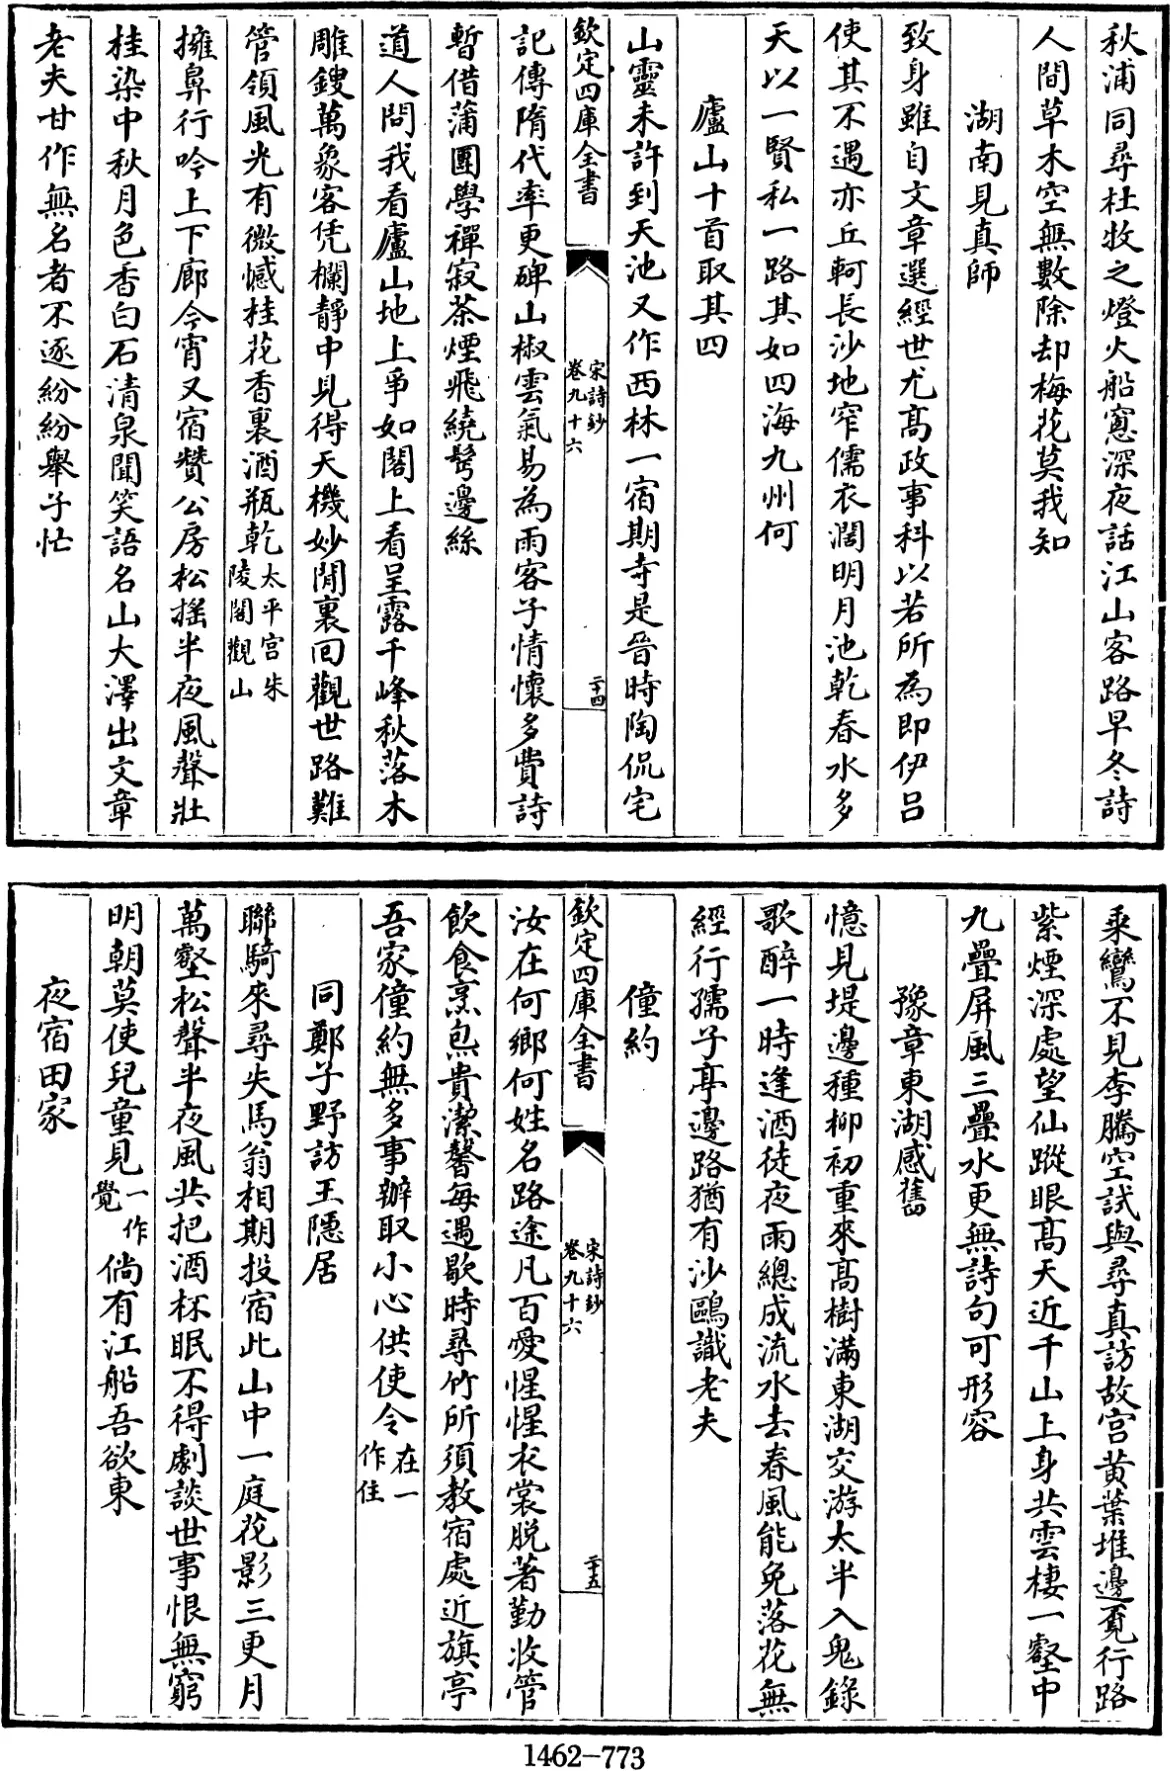 秋浦同尋杜牧之燈火船窻深夜話江山客路早冬詩
人間草木空無數除却梅花莫我知
湖南見真師
致身雖自文章選經世尤髙政事科以若所為即伊吕
使其不遇亦丘軻長沙地窄儒衣濶明月池乾春水多
天以一賢私一路其如四海九州何
廬山十首取其四
山靈未許到天池又作西林一宿期寺是晉時陶侃宅
欽定四庫全書
宋詩鈔
卷九十六
二十四
記傳隋代率更碑山椒雲氣易為雨客子情懷多費詩
暫借蒲團學禪寂茶煙飛繞鬢邊絲
道人問我看廬山地上爭如閣上看呈露千峰秋落木
雕鎪萬象客凭欄靜中見得天機妙閒裏回觀世路難
管領風光有微憾桂花香裏酒瓶乾太平宫朱
陵閣觀山
擁鼻行吟上下廊今宵又宿贊公房松揺半夜風聲壯
桂染中秋月色香白石清泉聞笑語名山大澤出文章
老夫甘作無名者不逐紛紛舉子忙
乘鸞不見李騰空試與尋真訪故宫黄葉堆邊覔行路
紫煙深處望仙蹤眼髙天近千山上身共雲棲一壑中
九疊屏風三疊水更無詩句可形容
豫章東湖感舊
憶見堤邊種柳初重來髙樹滿東湖交游太半入鬼錄
歌醉一時逢酒徒夜雨總成流水去春風能免落花無
經行孺子亭邊路猶有沙鷗識老夫
僮約
欽定四庫全書
宋詩鈔
卷九十六
二十五
汝在何鄉何姓名路途凡百愛惺惺衣裳脱著勤收管
飲食烹炰貴潔馨每遇歇時尋竹所須教宿處近旗亭
吾家僮約無多事辦取小心供使令在一
作住
同鄭子野訪王隱居
聯騎來尋失馬翁相期投宿此山中一庭花影三更月
萬壑松聲半夜風共把酒杯眠不得劇談世事恨無窮
明朝莫使兒童見一作
覺倘有江船吾欲東
夜宿田家
1462-773